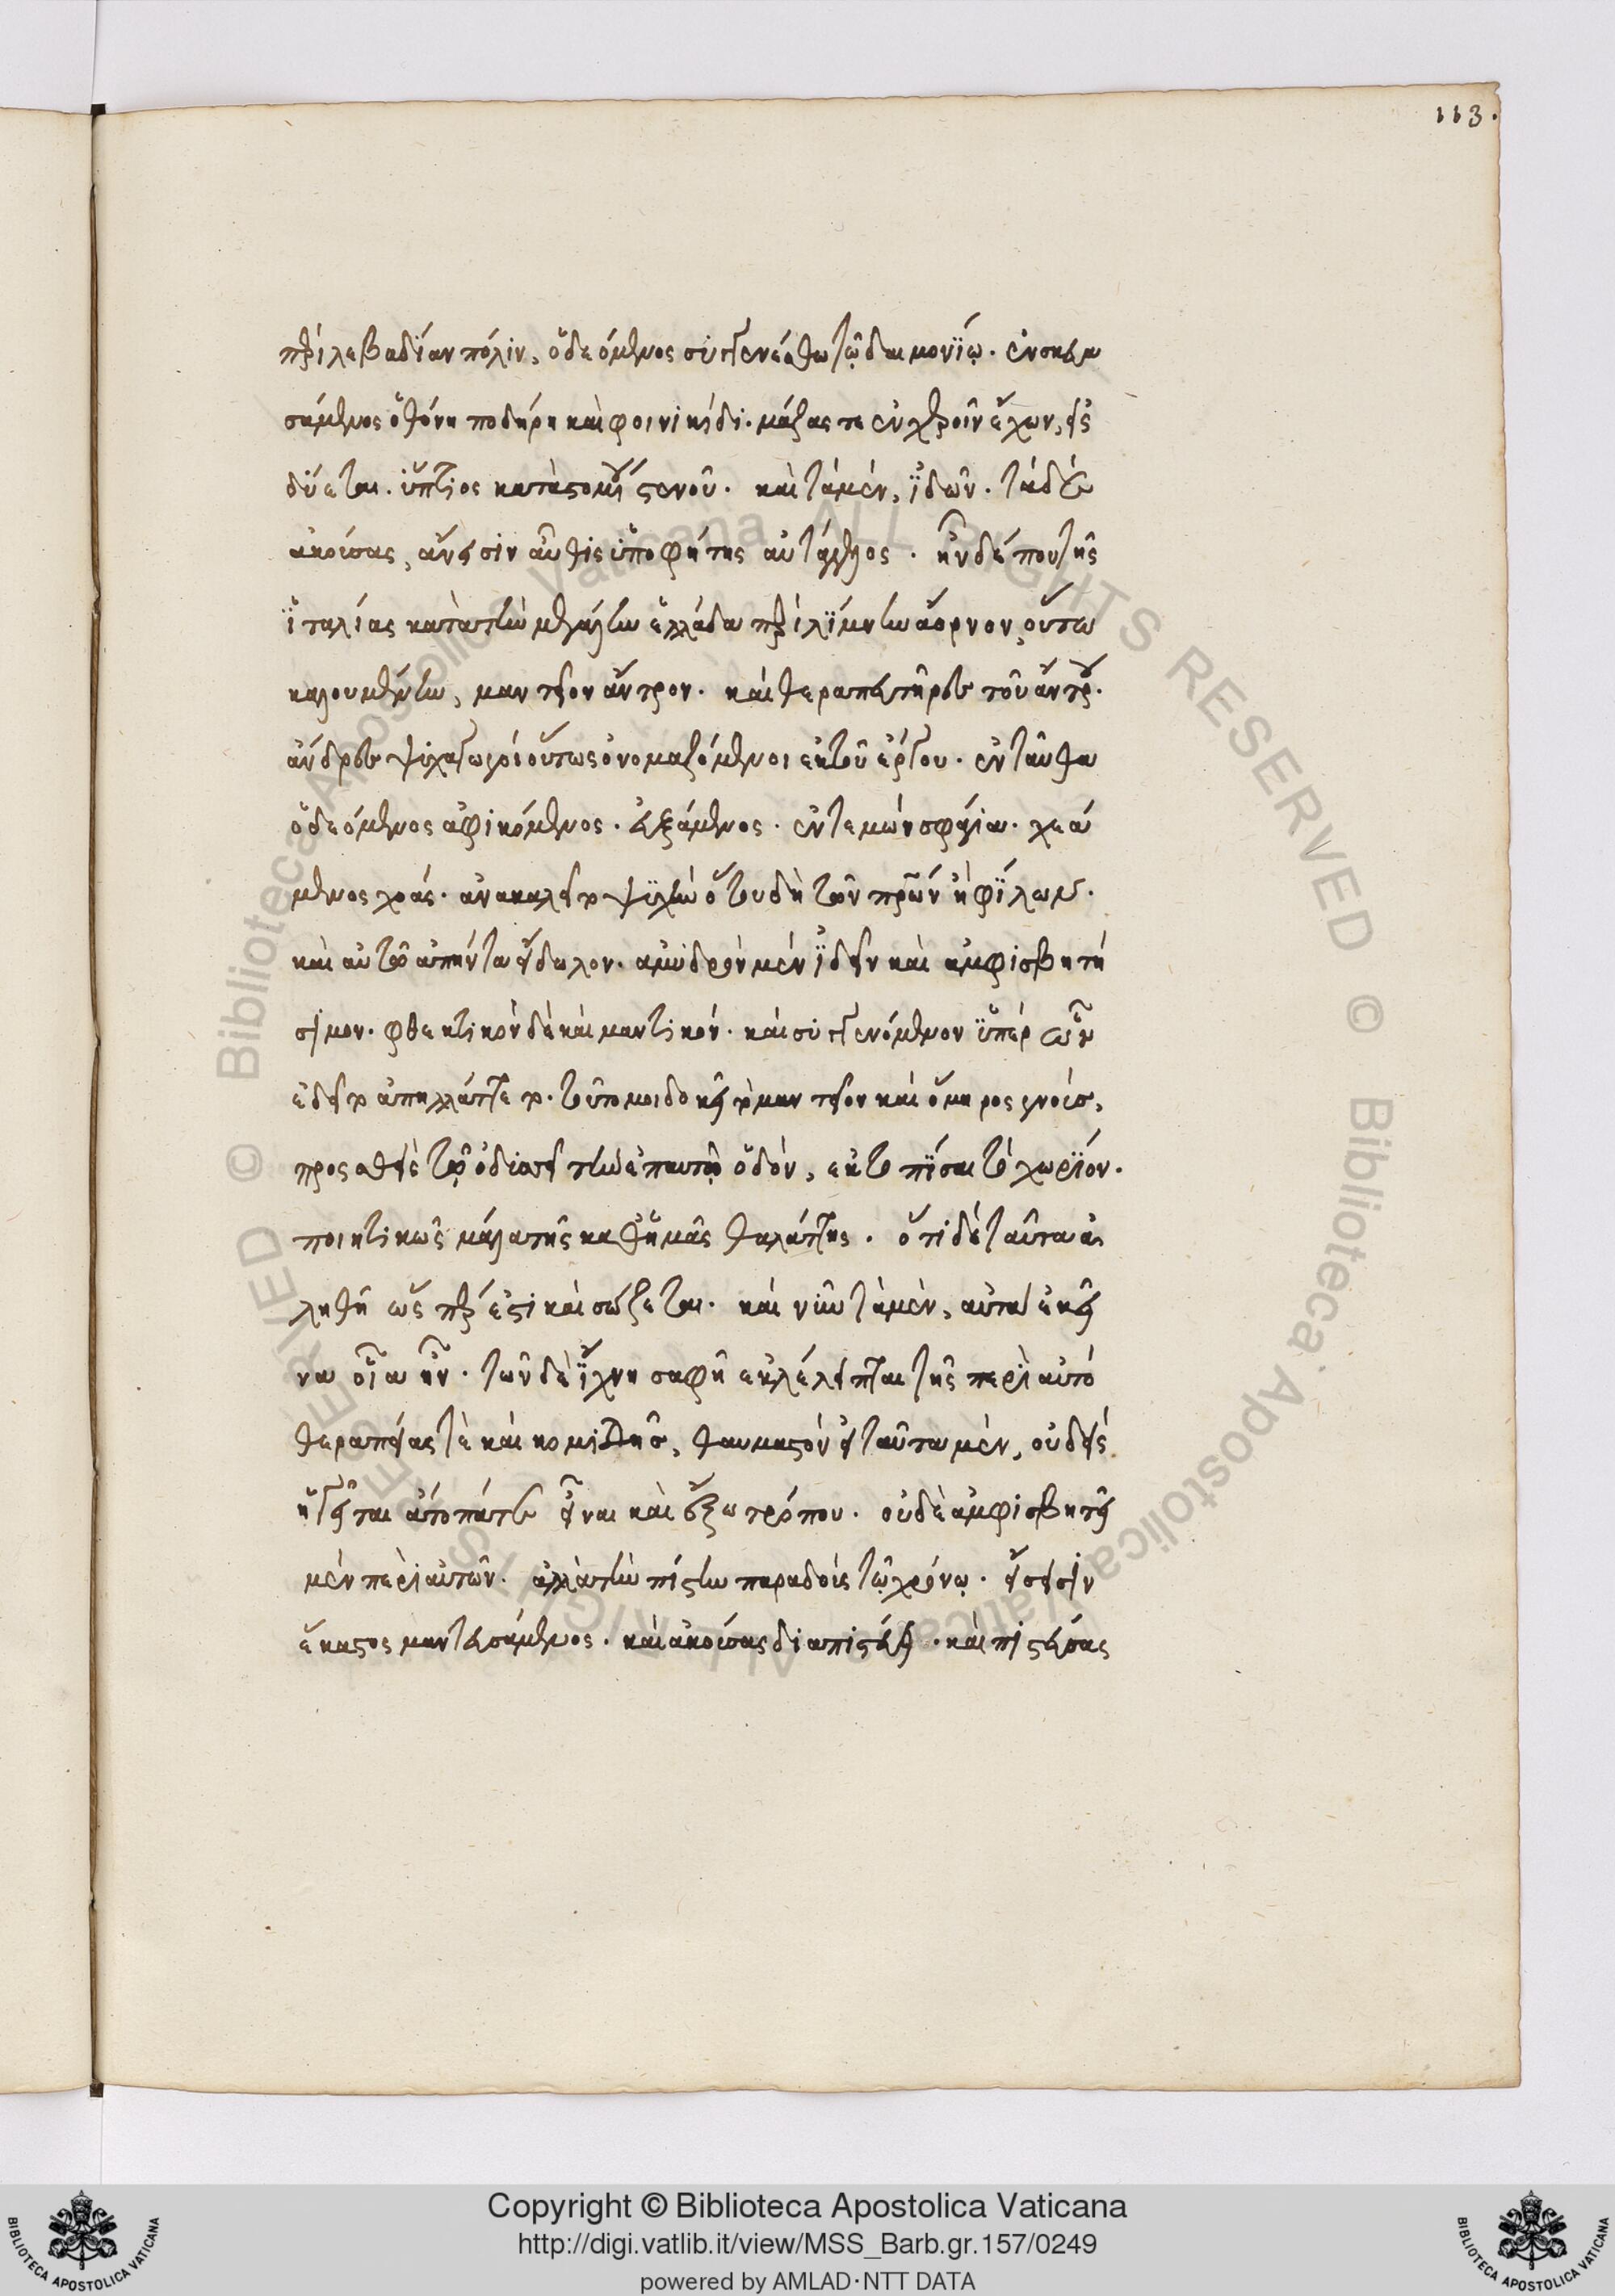 113.
περὶ λεβαδίαν πόλιν, ὁ δεόμενος συγγενέσθαι τῷ δαιμονίῳ. ἐνσκευα
σάμενος ὀθόνη ποδήρη καὶ φοινικίδι. μάζας τε ἐν χεροῖν ἔχων, εἰσ
δύεται. ὕπτιος κατὰ στομίου στενοῦ. καὶ τὰ μὲν, ἰδὼν. τὰ δὲ
ἀκούσας, ἄνεισιν αὖθις ὑποφήτης αὐτάγγελος. ἦν δέ που τῆς
ἰταλίας κατὰ τὴν μεγάλην ἑλλάδα περὶ λίμνην ἄορνον, οὕτω
καλουμένην, μαντεῖον ἄντρον. καὶ θεραπευτῆρες τοῦ ἄντρου.
ἄνδρες ψυχαγωγοὶ οὕτως ὀνομαζόμενοι ἐκ τοῦ ἔργου. ἐνταῦθα
ὁ δεόμενος ἀφικόμενος. εὐξάμενος. ἐντεμὼν σφάγια. χεά
μενος χοάς. ἀνεκαλεῖτο ψυχὴν ὅτου δὴ τῶν πατέρων ἢ φίλων.
καὶ αὐτῷ ἀπήντα εἴδωλον. ἀμυδρὸν μὲν ἰδεῖν καὶ ἀμφισβητή
σιμον. φθεκτικὸν δὲ καὶ μαντικόν. καὶ συγγενόμενον ὑπὲρ ὧν
ἐδεῖτο ἀπηλλάττετο. τοῦτό μοι δοκεῖ τὸ μαντεῖον καὶ ὅμηρος γνούς,
προσαθεὶς τῷ ὀδυσσεῖ τὴν ἐπ' αὐτῷ ὁδόν, ἐκτοπίσαι τὸ χωρίον.
ποιητικῶς μάλα τῆς καθ' ἡμᾶς θαλάττης. ὅτι δὲ ταῦτα ἀ
ληθῆ ὥσπερ ἐστι καὶ σώζεται. καὶ νῦν τὰ μὲν, αὐτὰ ἐκεῖ
να οἷα ἦν. τῶν δὲ ἴχνη σαφῆ ἐκλέλειπται τῆς περὶ αὐτὸ
θεραπείας τὲ καὶ κομιδῆς, θαυμαστὸν εἰ ταῦτα μὲν, οὐδεὶς
ἡγεῖται ἄτοπά τε εἶναι καὶ ἔξω τρόπου. οὐδὲ ἀμφισβητεῖ
μὲν περὶ αὐτῶν. ἀλλὰ τὴν πίστιν παραδοὺς τῷ χρόνῳ. εἴσεισιν
ἕκαστος μαντευσόμενος. καὶ ἀκούσας διαπιστεύει. καὶ πιστεύσας
Copyright © Biblioteca Apostolica Vaticana
http://digi.vatlib.it/view/MSS_Barb.gr.157/0249
powered by AMLAD·NTT DATA